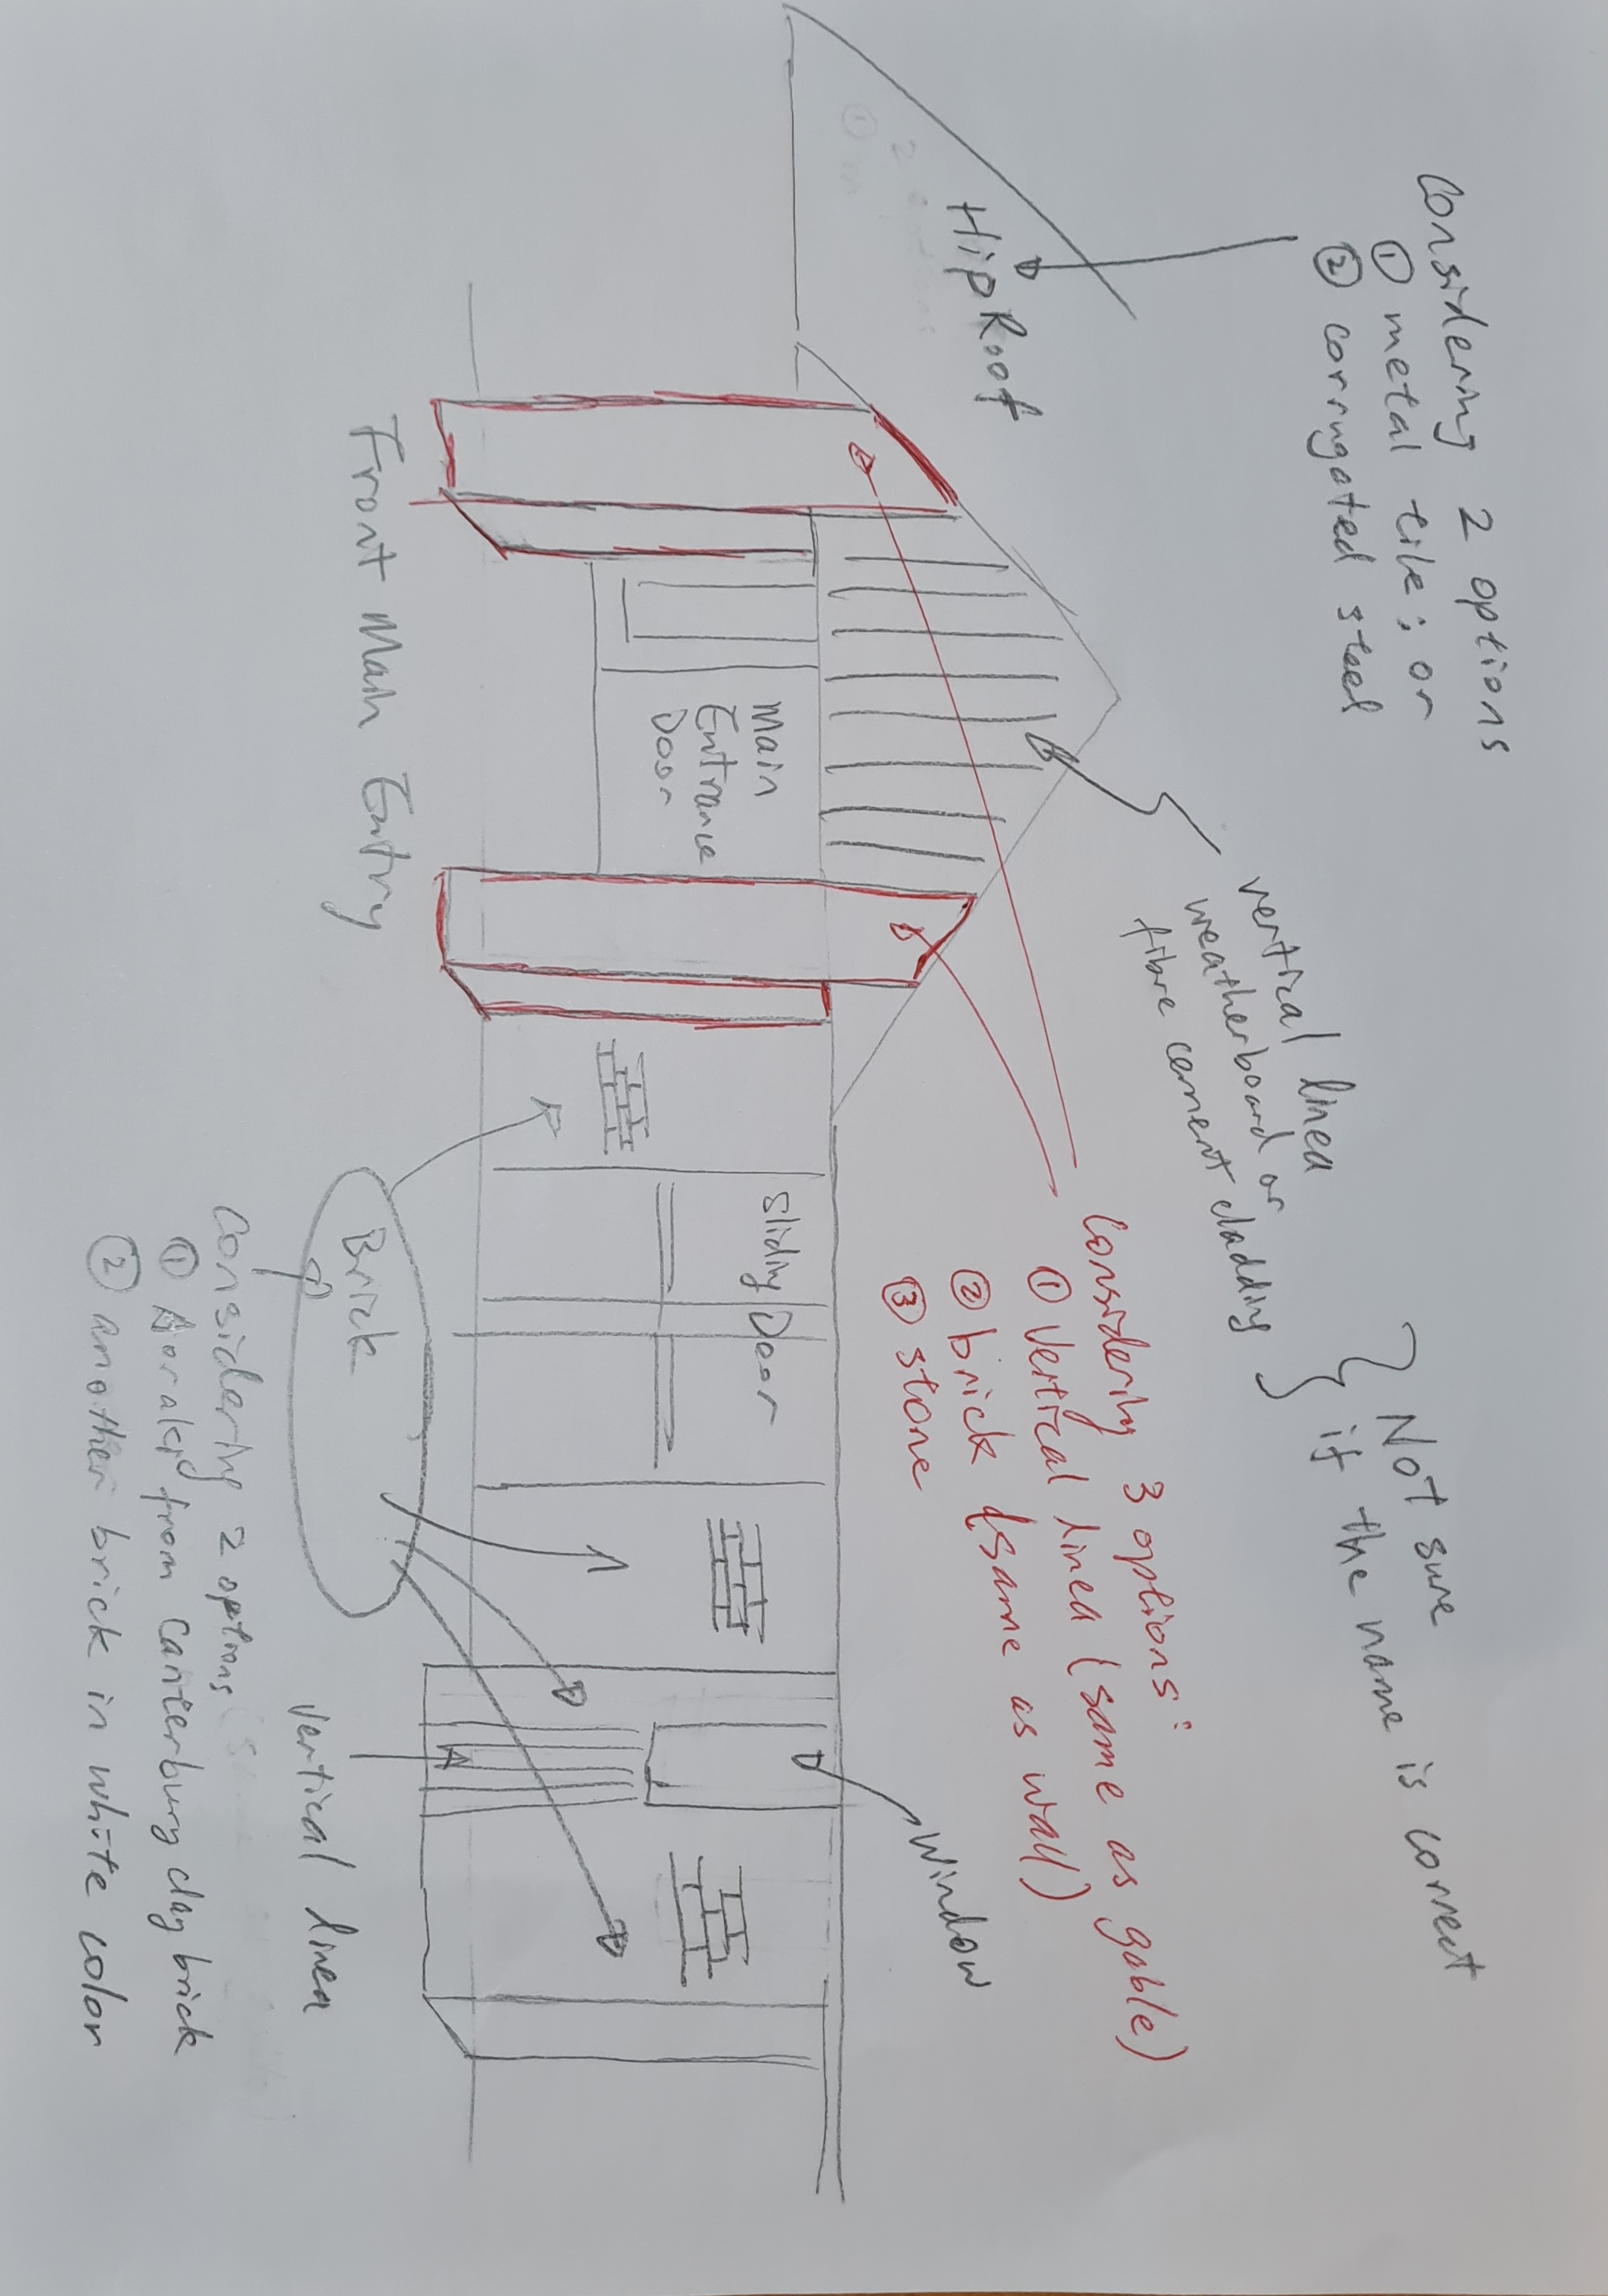 Considering 2 options
① metal tile; or
② corrugated steel
vertical linea
weatherboard or
fibre cement cladding
Not sure
if the name is correct
Considering 3 options:
① Vertical linea (same as gable)
② brick (same as wall)
③ stone
Window
Hip Roof
2 options
① m
Main
Entrance
Door
Sliding Door
Front Main Entry
Brick
vertical linea
Considering 2 options
① Aoraki from Canterbury clay brick
② another brick in white color